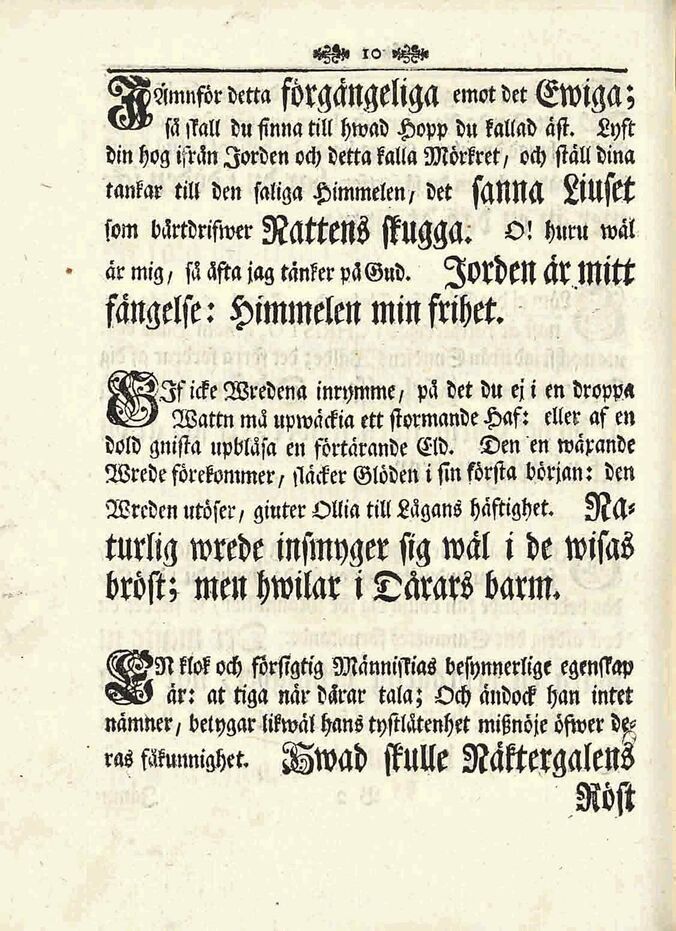 10
JÄmnför detta förgängeliga emot det Ewiga;
så skall du finna till hwad Hopp du kallad äst. Lyft
din hog ifrån Jorden och detta kalla Mörkret, och ställ dina
tankar till den saliga Himmelen, det sanna Liuset
som bårtdrifwer Nattens skugga. O! huru wäl
är mig, så åfta jag tänker på Gud. Jorden är mitt
fängelse: Himmelen min frihet.
GIf icke Wredena inrymme, på det du ej i en droppa
Wattn må upwäckia ett stormande Haf: eller af en
dold gnista upblåsa en förtärande Eld. Den en wäxande
Wrede förekommer, släcker Glöden i sin första början: den
Wreden utöser, giuter Ollia till Lågans häftighet. Na-
turlig wrede insmyger sig wäl i de wisas
bröst; men hwilar i Dårars barm.
EN klok och försigtig Människias besynnerlige egenskap
är: at tiga när dårar tala; Och ändock han intet
nämner, betygar likwäl hans tystlåtenhet mißnöje öfwer de-
ras fåkunnighet. Hwad skulle Näktergalens
Röst